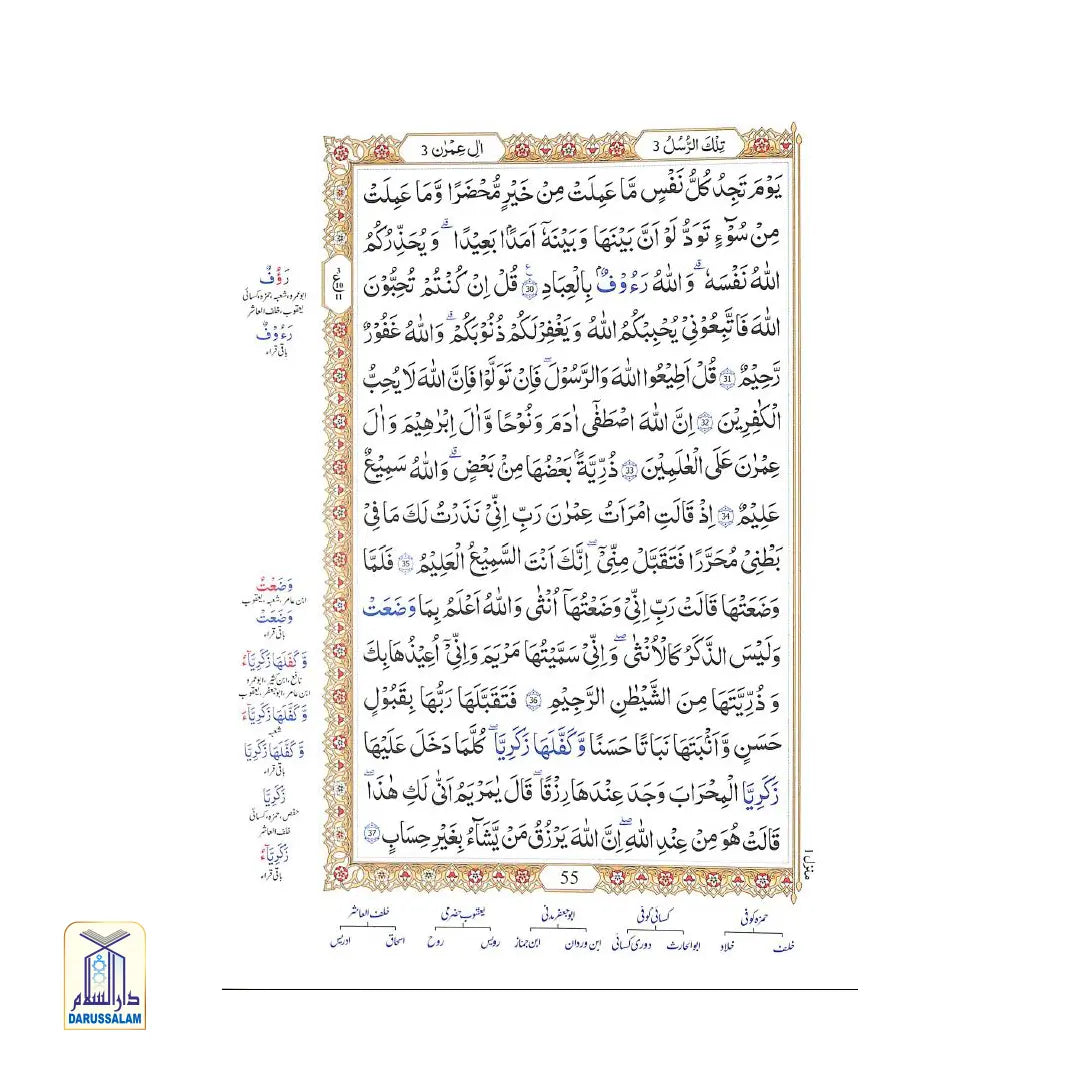 تِلْكَ الرُّسُلُ 3
اٰلِ عِمْرٰن 3
يَوْمَ تَجِدُ كُلُّ نَفْسٍ مَّا عَمِلَتْ مِنْ خَيْرٍ مُّحْضَرًا وَّمَا عَمِلَتْ
مِنْ سُوْٓءٍ تَوَدُّ لَوْ اَنَّ بَيْنَهَا وَبَيْنَهٗٓ اَمَدًۢا بَعِيْدًا ۗ وَيُحَذِّرُكُمُ
اللّٰهُ نَفْسَهٗ ۗ وَاللّٰهُ رَءُوْفٌۢ بِالْعِبَادِ 30 قُلْ اِنْ كُنْتُمْ تُحِبُّوْنَ
اللّٰهَ فَاتَّبِعُوْنِيْ يُحْبِبْكُمُ اللّٰهُ وَيَغْفِرْلَكُمْ ذُنُوْبَكُمْ ۗ وَاللّٰهُ غَفُوْرٌ
رَّحِيْمٌ 31 قُلْ اَطِيْعُوا اللّٰهَ وَالرَّسُوْلَ ۚ فَاِنْ تَوَلَّوْا فَاِنَّ اللّٰهَ لَا يُحِبُّ
الْكٰفِرِيْنَ 32 اِنَّ اللّٰهَ اصْطَفٰٓى اٰدَمَ وَنُوْحًا وَّاٰلَ اِبْرٰهِيْمَ وَاٰلَ
عِمْرٰنَ عَلَى الْعٰلَمِيْنَ 33 ذُرِّيَّةًۢ بَعْضُهَا مِنْۢ بَعْضٍ ۗ وَاللّٰهُ سَمِيْعٌ
عَلِيْمٌ 34 اِذْ قَالَتِ امْرَاَتُ عِمْرٰنَ رَبِّ اِنِّيْ نَذَرْتُ لَكَ مَا فِيْ
بَطْنِيْ مُحَرَّرًا فَتَقَبَّلْ مِنِّيْ ۚ اِنَّكَ اَنْتَ السَّمِيْعُ الْعَلِيْمُ 35 فَلَمَّا
وَضَعَتْهَا قَالَتْ رَبِّ اِنِّيْ وَضَعْتُهَآ اُنْثٰى وَاللّٰهُ اَعْلَمُ بِمَا وَضَعَتْ
وَلَيْسَ الذَّكَرُ كَالْاُنْثٰى ۚ وَاِنِّيْ سَمَّيْتُهَا مَرْيَمَ وَاِنِّيْٓ اُعِيْذُهَا بِكَ
وَذُرِّيَّتَهَا مِنَ الشَّيْطٰنِ الرَّجِيْمِ 36 فَتَقَبَّلَهَا رَبُّهَا بِقَبُوْلٍ
حَسَنٍ وَّاَنْۢبَتَهَا نَبَاتًا حَسَنًا وَّكَفَّلَهَا زَكَرِيَّا ۚ كُلَّمَا دَخَلَ عَلَيْهَا
زَكَرِيَّا الْمِحْرَابَ وَجَدَ عِنْدَهَا رِزْقًا ۚ قَالَ يٰمَرْيَمُ اَنّٰى لَكِ هٰذَا ۚ
قَالَتْ هُوَ مِنْ عِنْدِ اللّٰهِ ۚ اِنَّ اللّٰهَ يَرْزُقُ مَنْ يَّشَآءُ بِغَيْرِ حِسَابٍ 37
55
منزل ١
رَؤُفٌ
ابوعمرو، شعبہ، حمزہ، کسائی
یعقوب، خلف العاشر
رَءُوْفٌ
باقی قراء
وَضَعْتُ
ابن عامر، شعبہ، یعقوب
وَضَعَتْ
باقی قراء
وَّكَفَلَهَا زَكَرِيَّآءُ
نافع، ابن کثیر، ابوعمرو
ابن عامر، ابوجعفر، یعقوب
وَّكَفَّلَهَا زَكَرِيَّآءَ
شعبہ
وَّكَفَّلَهَا زَكَرِيَّا
باقی قراء
زَكَرِيَّا
حفص، حمزہ، کسائی
خلف العاشر
زَكَرِيَّآءُ
باقی قراء
حمزہ کوفی کسائی کوفی ابوجعفر مدنی یعقوب حضرمی خلف العاشر
خلف خلاد ابوالحارث دوری کسائی ابن وردان ابن جماز رویس روح اسحاق ادریس
دار السلام
DARUSSALAM